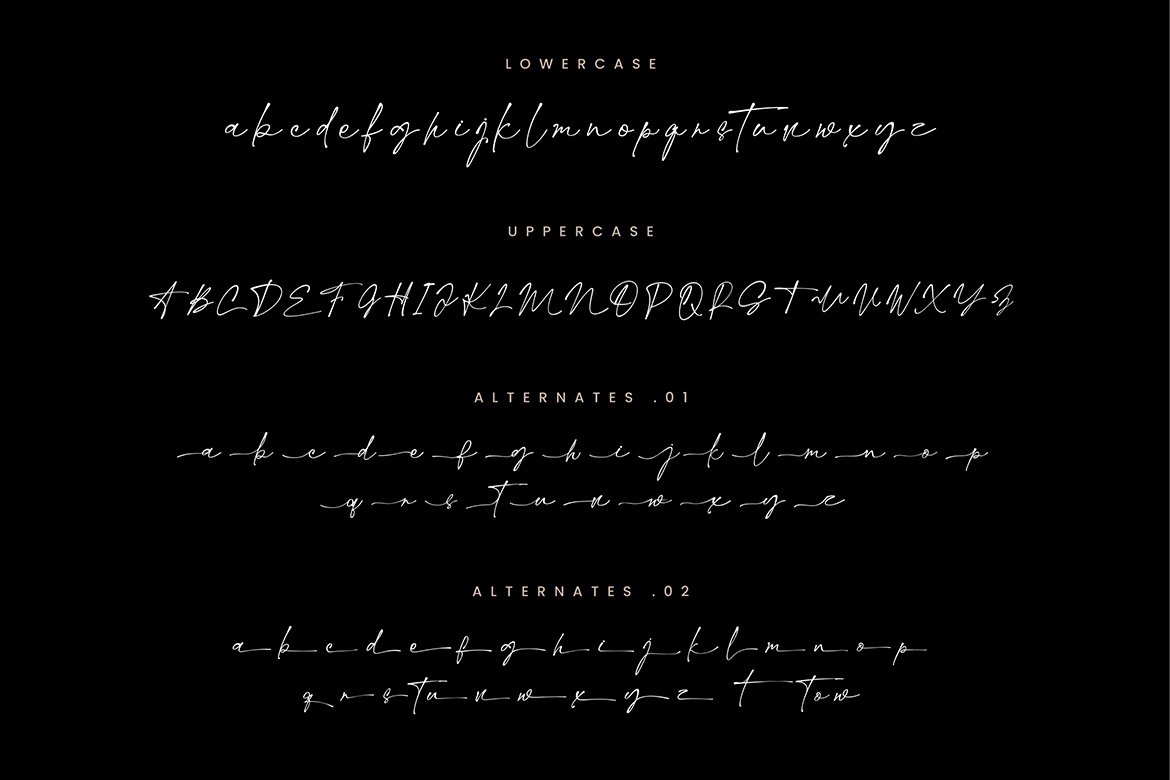 LOWERCASE
a b c d e f g h i j k l m n o p q r s t u v w x y z
UPPERCASE
A B C D E F G H I J K L M N O P Q R S T U V W X Y Z
ALTERNATES .01
a b c d e f g h i j k l m n o p
q r s t u v w x y z
ALTERNATES .02
a b c d e f g h i j k l m n o p
q r s t u v w x y z t tow